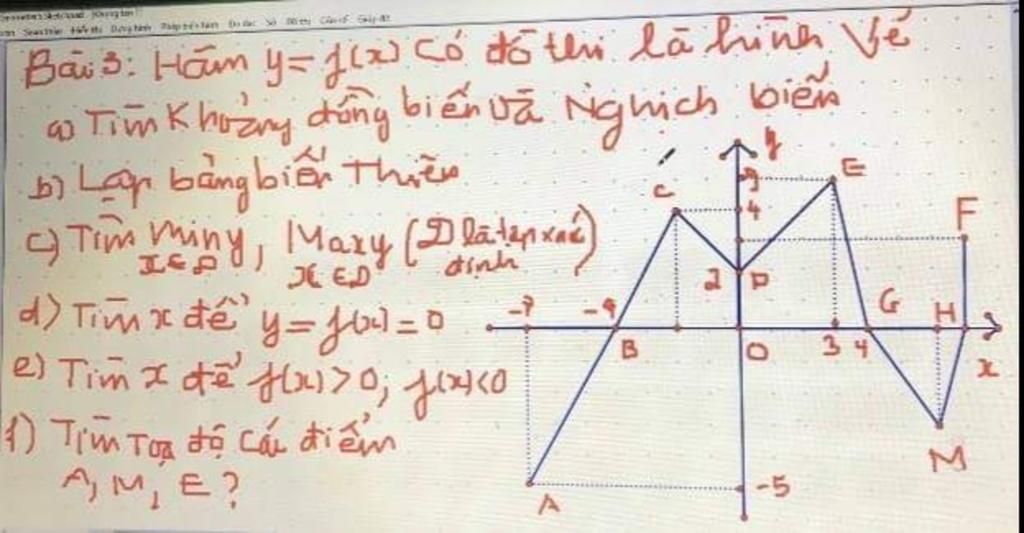 Bài 3: Hàm y = f(x) có đồ thị là hình vẽ
a) Tìm Khoảng đồng biến và Nghịch biến
b) Lập bảng biến Thiên
c) Tìm Min y, Max y (D là tập xác định)
x∈D x∈D
d) Tìm x để y = f(x) = 0
e) Tìm x để f(x) > 0; f(x) < 0
f) Tìm Toạ độ các điểm
A, M, E ?
y
E
C
4
F
2 D
-7
G H
B
O
3 4
x
M
A
-5